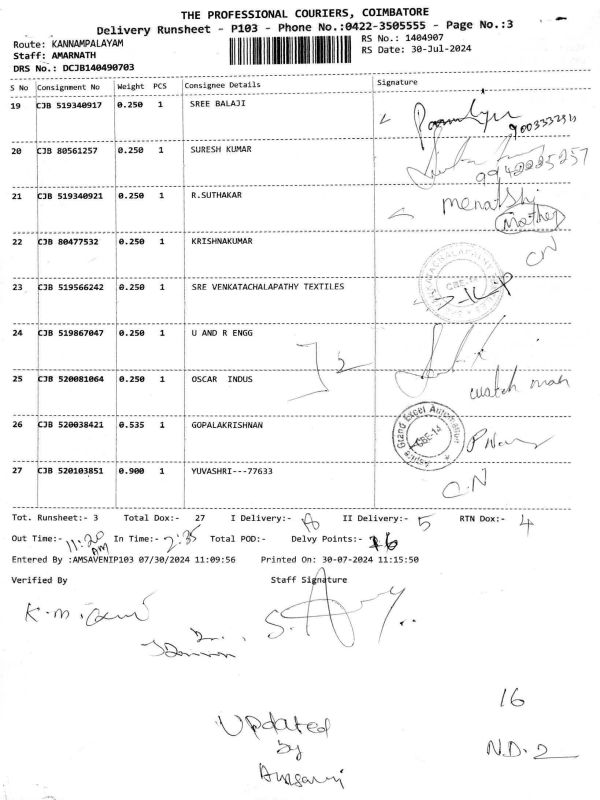 THE PROFESSIONAL COURIERS, COIMBATORE
Delivery Runsheet - P103 - Phone No.:0422-3505555 - Page No.:3
Route: KANNAMPALAYAM
RS No.: 1404907
Staff: AMARNATH
RS Date: 30-Jul-2024
DRS No.: DCJB140490703
S No Consignment No Weight PCS Consignee Details Signature
19 CJB 519340917 0.250 1 SREE BALAJI
20 CJB 80561257 0.250 1 SURESH KUMAR
21 CJB 519340921 0.250 1 R.SUTHAKAR menatshi
mother
22 CJB 80477532 0.250 1 KRISHNAKUMAR CN
23 CJB 519566242 0.250 1 SRE VENKATACHALAPATHY TEXTILES
24 CJB 519867047 0.250 1 U AND R ENGG
25 CJB 520081064 0.250 1 OSCAR INDUS
26 CJB 520038421 0.535 1 GOPALAKRISHNAN CBE-14
27 CJB 520103851 0.900 1 YUVASHRI---77633 CN
Tot. Runsheet:- 3 Total Dox:- 27 I Delivery:- II Delivery:- 5 RTN Dox:- 4
Out Time:- 11:20 AM In Time:- 2:35 Total POD:- Delvy Points:- 16
Entered By :AMSAVENIP103 07/30/2024 11:09:56 Printed On: 30-07-2024 11:15:50
Verified By Staff Signature
16
Updated
by
N.D. 2
Amsaveni